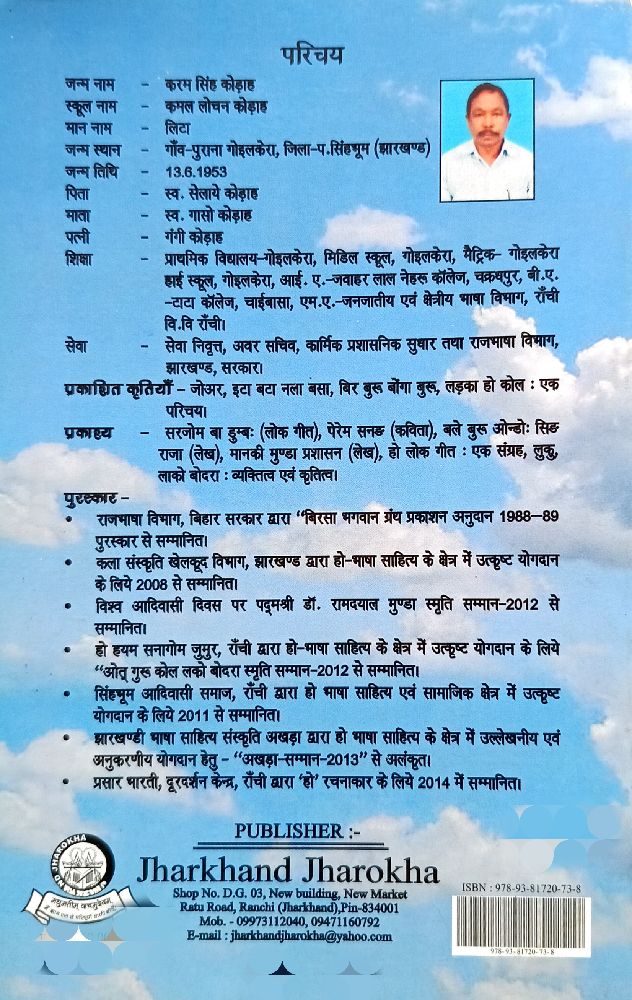 परिचय
जन्म नाम - करम सिंह कोड़ाह
स्कूल नाम - कमल लोचन कोड़ाह
मान नाम - लिटा
जन्म स्थान - गाँव-पुराना गोइलकेरा, जिला-प.सिंहभूम (झारखण्ड)
जन्म तिथि - 13.6.1953
पिता - स्व. सेलाये कोड़ाह
माता - स्व. गासो कोड़ाह
पत्नी - गंगी कोड़ाह
शिक्षा - प्राथमिक विद्यालय-गोइलकेरा, मिडिल स्कूल, गोइलकेरा, मैट्रिक- गोइलकेरा
हाई स्कूल, गोइलकेरा, आई. ए.-जवाहर लाल नेहरू कॉलेज, चक्रधपुर, बी.ए.
-टाटा कॉलेज, चाईबासा, एम.ए.-जनजातीय एवं क्षेत्रीय भाषा विभाग, राँची
वि.वि राँची।
सेवा - सेवा निवृत्त, अवर सचिव, कार्मिक प्रशासनिक सुधार तथा राजभाषा विभाग,
झारखण्ड, सरकार।
प्रकाशित कृतियाँ – जोअर, इटा बटा नला बसा, बिर बुरू बोंगा बुरू, लड़का हो कोल : एक
परिचय।
प्रकाश्य - सरजोम बा डुम्बः (लोक गीत), पेरेम सनङ (कविता), बले बुरू ओन्डोः सिङ
राजा (लेख), मानकी मुण्डा प्रशासन (लेख), हो लोक गीत : एक संग्रह, लुकु,
लाको बोदरा : व्यक्तित्व एवं कृतित्व।
पुरस्कार –
• राजभाषा विभाग, बिहार सरकार द्वारा “बिरसा भगवान ग्रंथ प्रकाशन अनुदान 1988–89
पुरस्कार से सम्मानित।
• कला संस्कृति खेलकूद विभाग, झारखण्ड द्वारा हो-भाषा साहित्य के क्षेत्र में उत्कृष्ट योगदान
के लिये 2008 से सम्मानित।
• विश्व आदिवासी दिवस पर पद्मश्री डॉ. रामदयाल मुण्डा स्मृति सम्मान-2012 से
सम्मानित।
• हो हयम सनागोम जुमुर, राँची द्वारा हो-भाषा साहित्य के क्षेत्र में उत्कृष्ट योगदान के लिये
“ओत् गुरू कोल लको बोदरा स्मृति सम्मान-2012 से सम्मानित।
• सिंहभूम आदिवासी समाज, राँची द्वारा हो भाषा साहित्य एवं सामाजिक क्षेत्र में उत्कृष्ट
योगदान के लिये 2011 से सम्मानित।
• झारखण्डी भाषा साहित्य संस्कृति अखड़ा द्वारा हो भाषा साहित्य के क्षेत्र में उल्लेखनीय एवं
अनुकरणीय योगदान हेतु - “अखड़ा-सम्मान-2013” से अलंकृत।
• प्रसार भारती, दूरदर्शन केन्द्र, राँची द्वारा ‘हो’ रचनाकार के लिये 2014 में सम्मानित।
PUBLISHER :-
JHAROKHA
Jharkhand Jharokha
Shop No. D.G. 03, New building, New Market
Ratu Road, Ranchi (Jharkhand),Pin-834001
Mob. - 09973112040, 09471160792
E-mail : jharkhandjharokha@yahoo.com
ISBN : 978-93-81720-73-8
978-93-81720-73-8